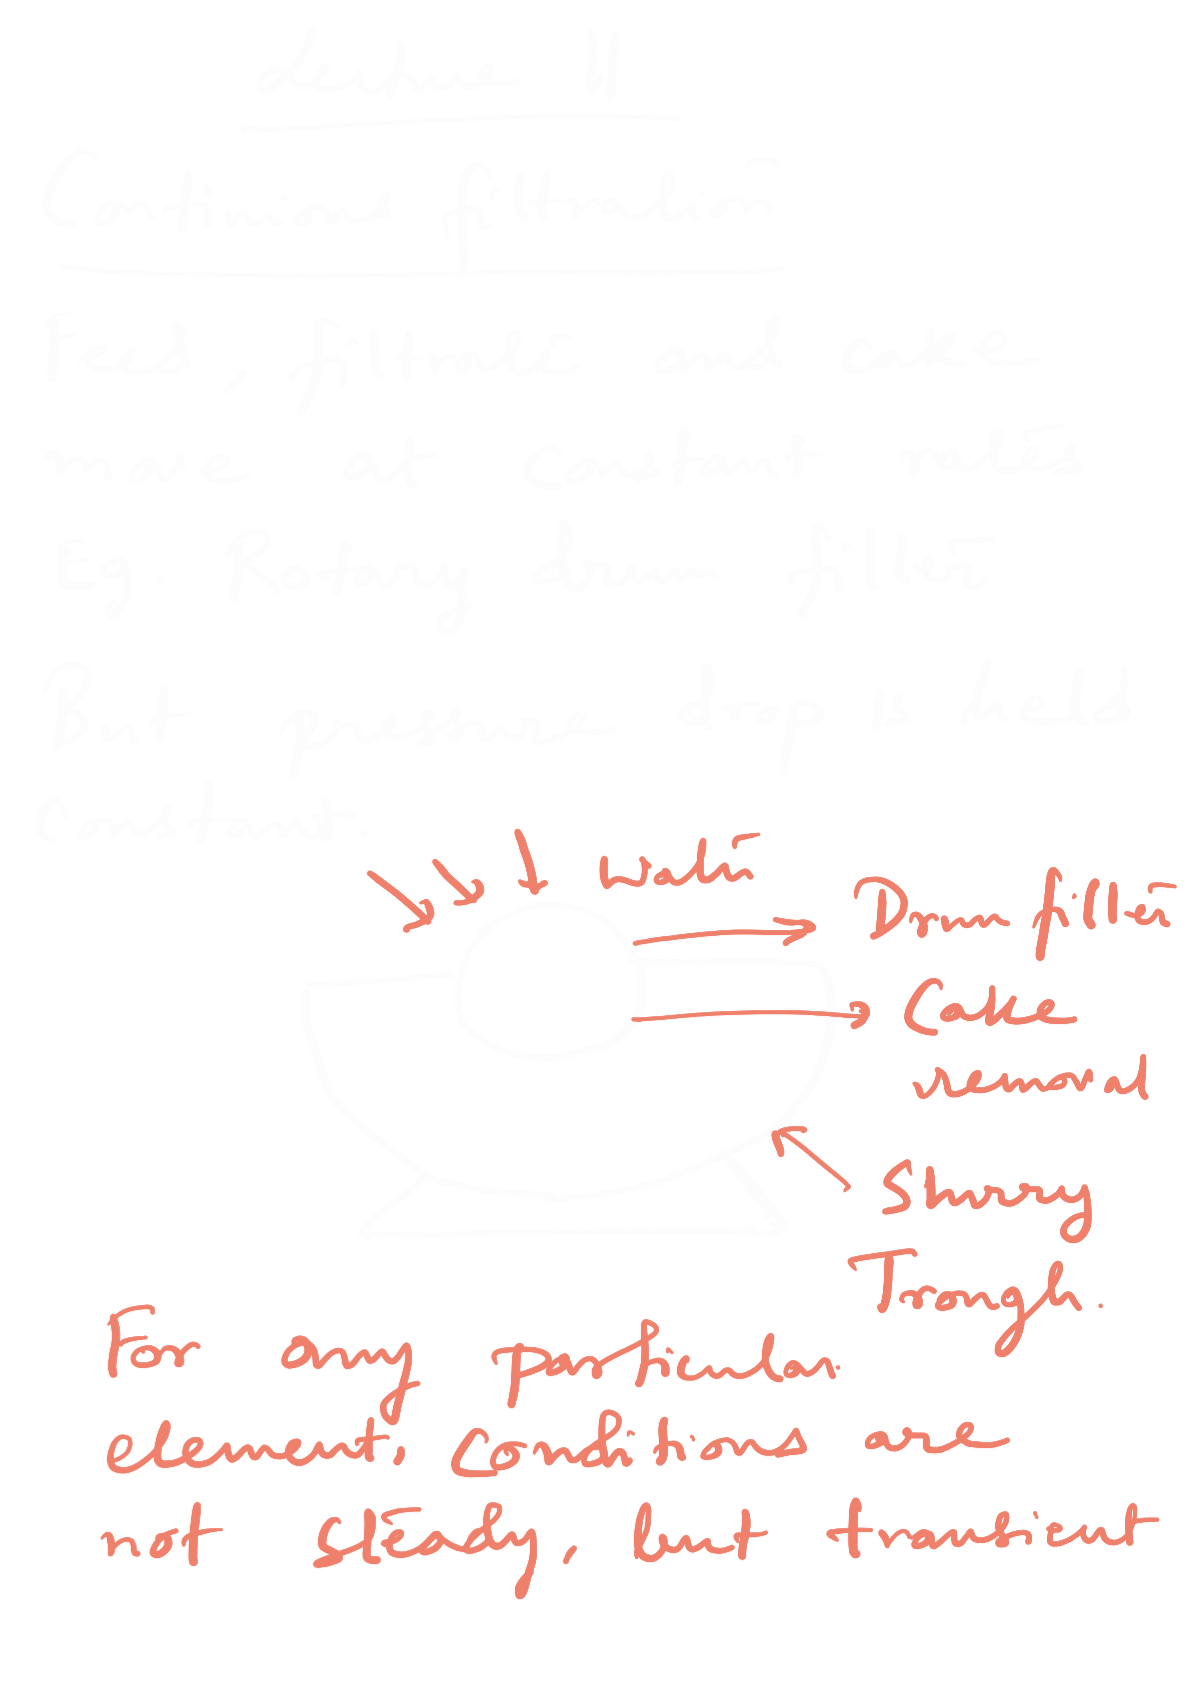 Lecture 11
Continious filtration
Feed, filtrate and cake
move at constant rates
Eg. Rotary drum filter
But pressure drop is held
constant.
water
Drum filter
Cake
removal
Slurry
Trough.
For any particular
element, conditions are
not steady, but transient